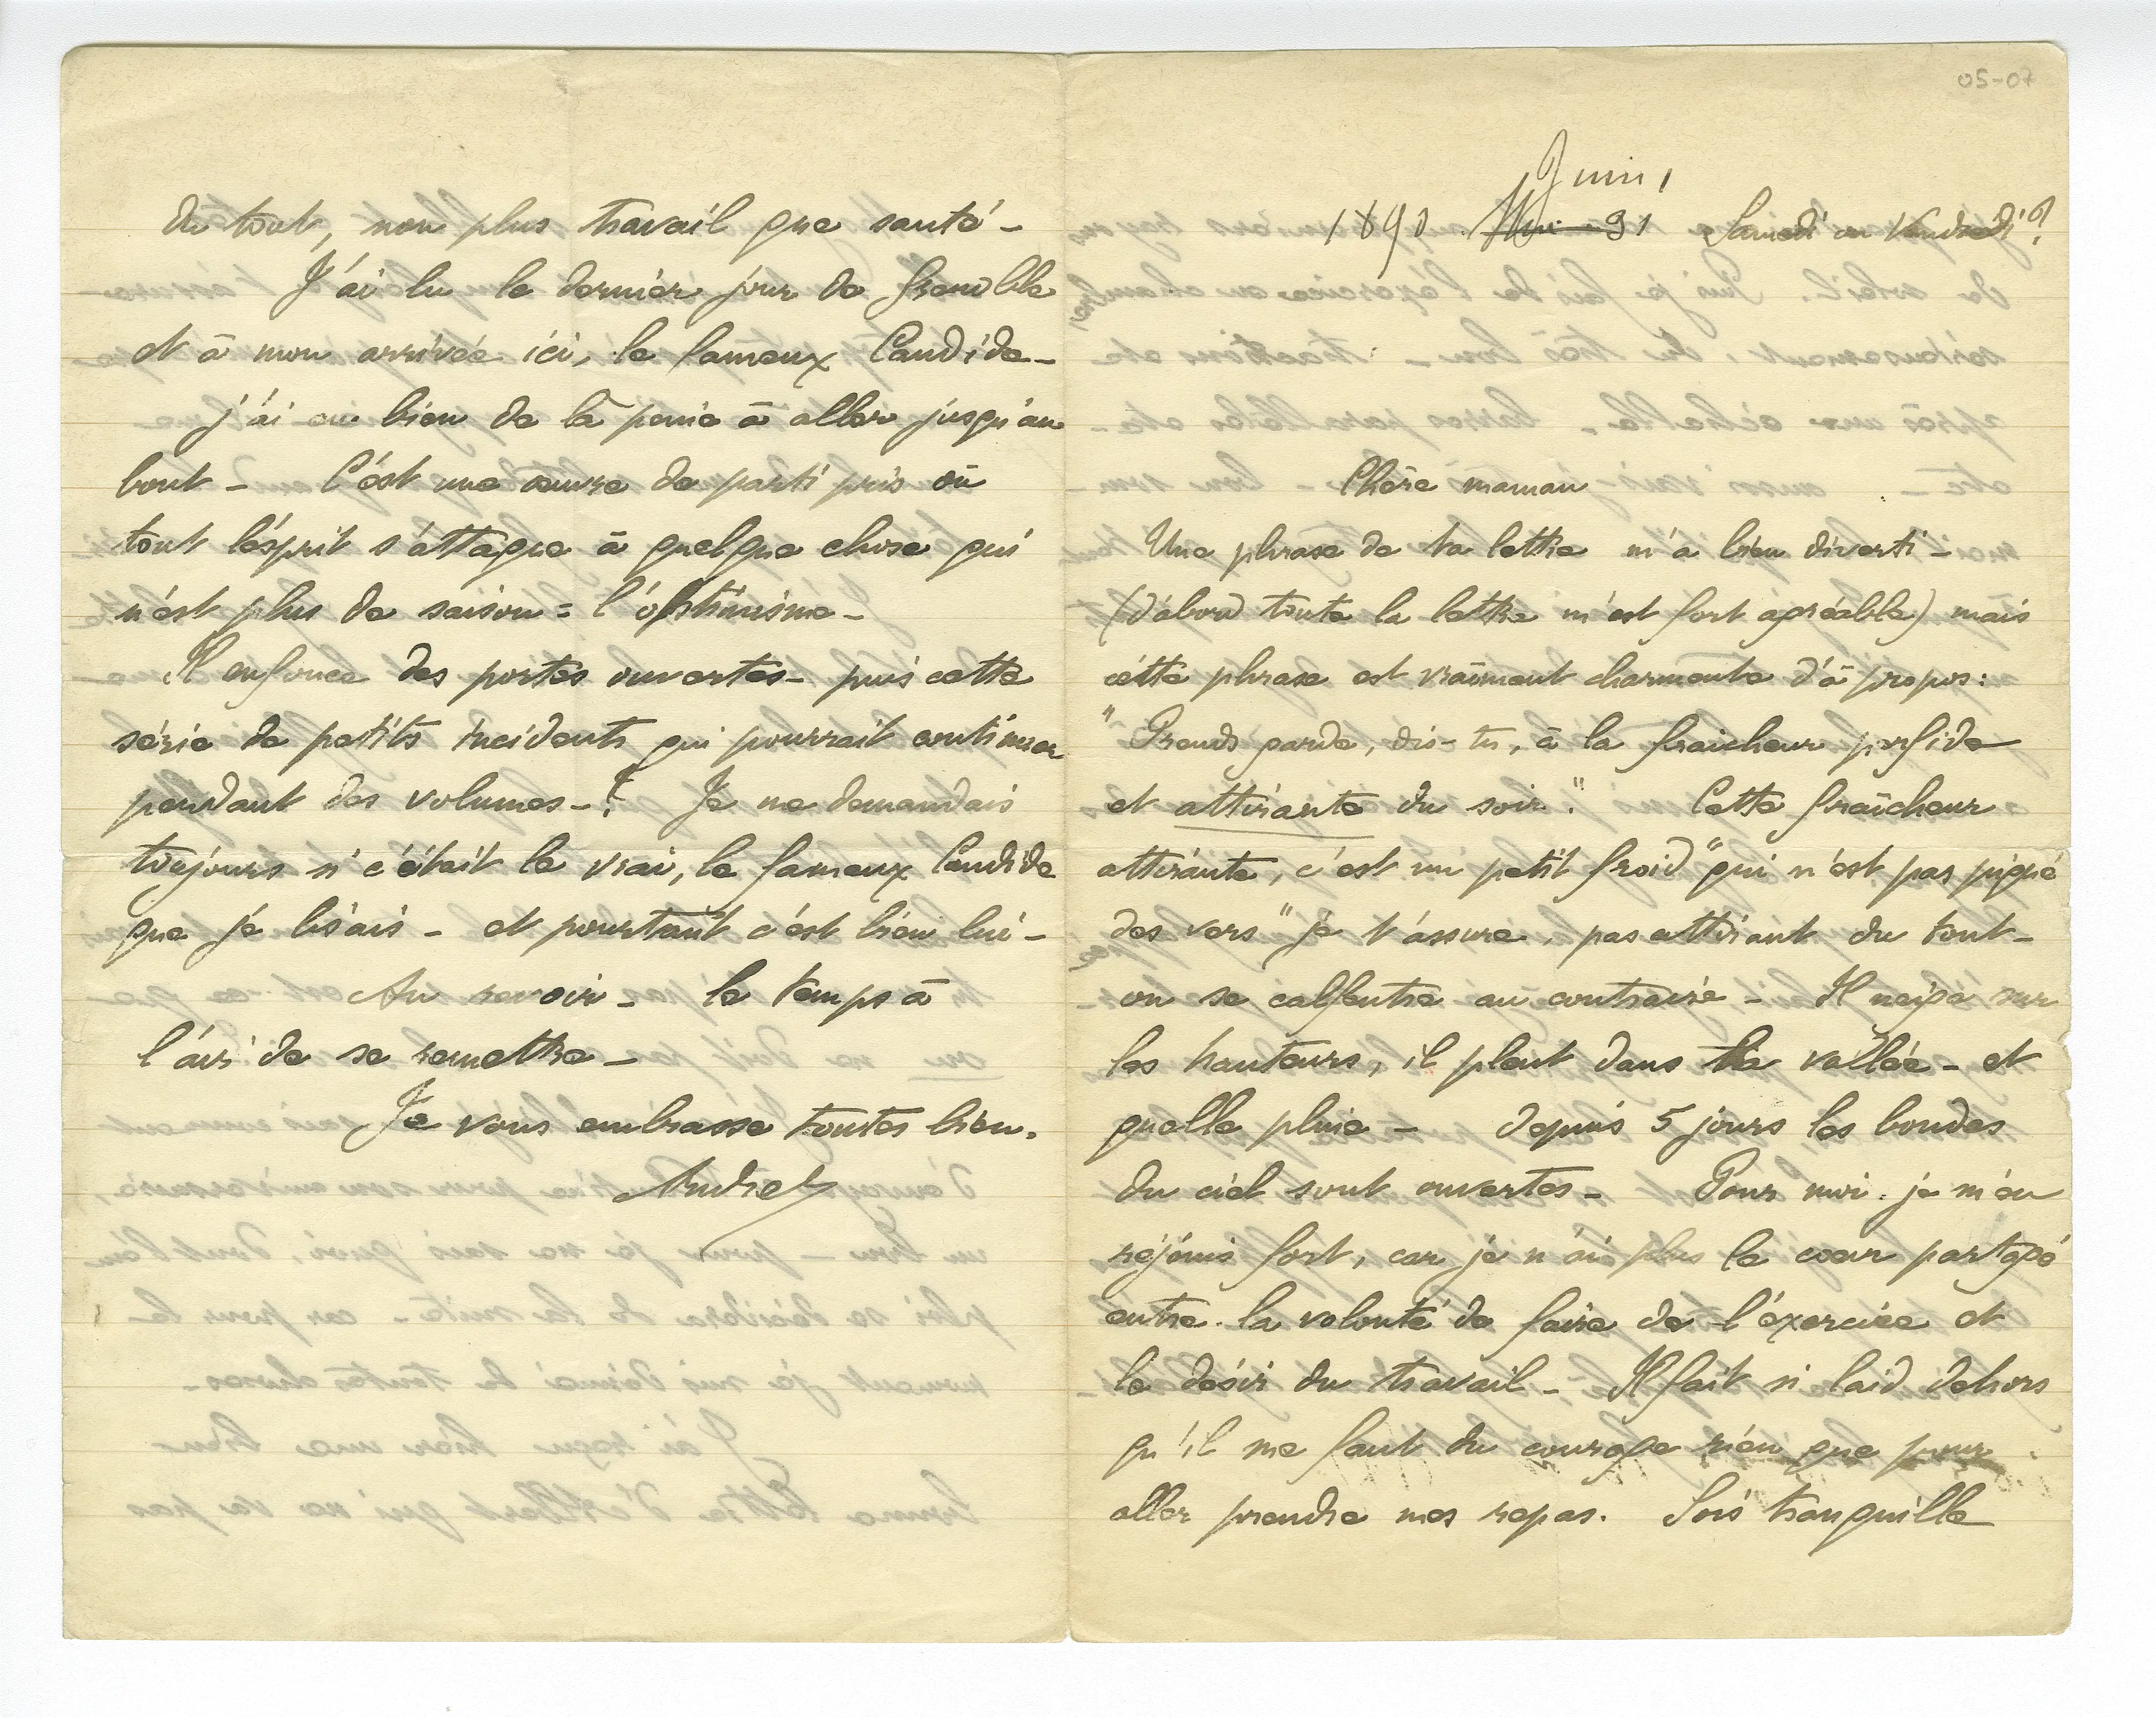 05-07
Juin
1890 Mai 91 Samedi ou Vendredi?
Chère maman
Une phrase de ta lettre m'a bien diverti -
(d'abord toute la lettre m'est fort agréable) mais
cette phrase est vraiment charmante d'à propos:
"Prends garde, dis-tu, à la fraicheur perfide
et attirante du soir". Cette fraîcheur
attirante, c'est un petit froid "qui n'est pas piqué
des vers" je t'assure, pas attirant du tout -
on se calfeutre au contraire - Il neige sur
les hauteurs, il pleut dans la vallée - et
quelle pluie - depuis 5 jours les bondes
du ciel sont ouvertes - Pour moi je m'en
réjouis fort, car je n'ai plus le cœur partagé
entre la volonté de faire de l'exercice et
le désir du travail - Il fait si laid dehors
qu'il me faut du courage rien que pour
aller prendre mes repas. Sois tranquille
du tout, non plus travail que santé -
J'ai lu le dernier jour de Grenoble
et à mon arrivée ici, le fameux Candide -
j'ai eu bien de la peine à aller jusqu'au
bout - C'est une œuvre de parti pris où
tout l'esprit s'attaque à quelque chose qui
n'est plus de saison = l'optimisme -
Il enfonce des portes ouvertes - puis cette
série de petits incidents qui pourrait continuer
pendant des volumes -! Je me demandais
toujours si c'était le vrai, le fameux Candide
que je lisais - et pourtant c'est bien lui -
Au revoir - le temps a
l'air de se remettre -
Je vous embrasse toutes bien.
André